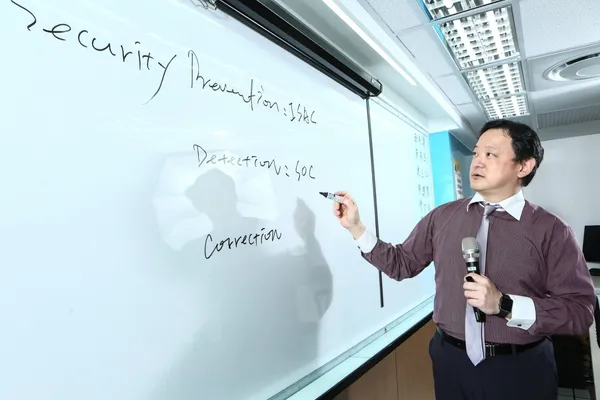 Security Prevention: ISAC
Detection: SOC
Correction